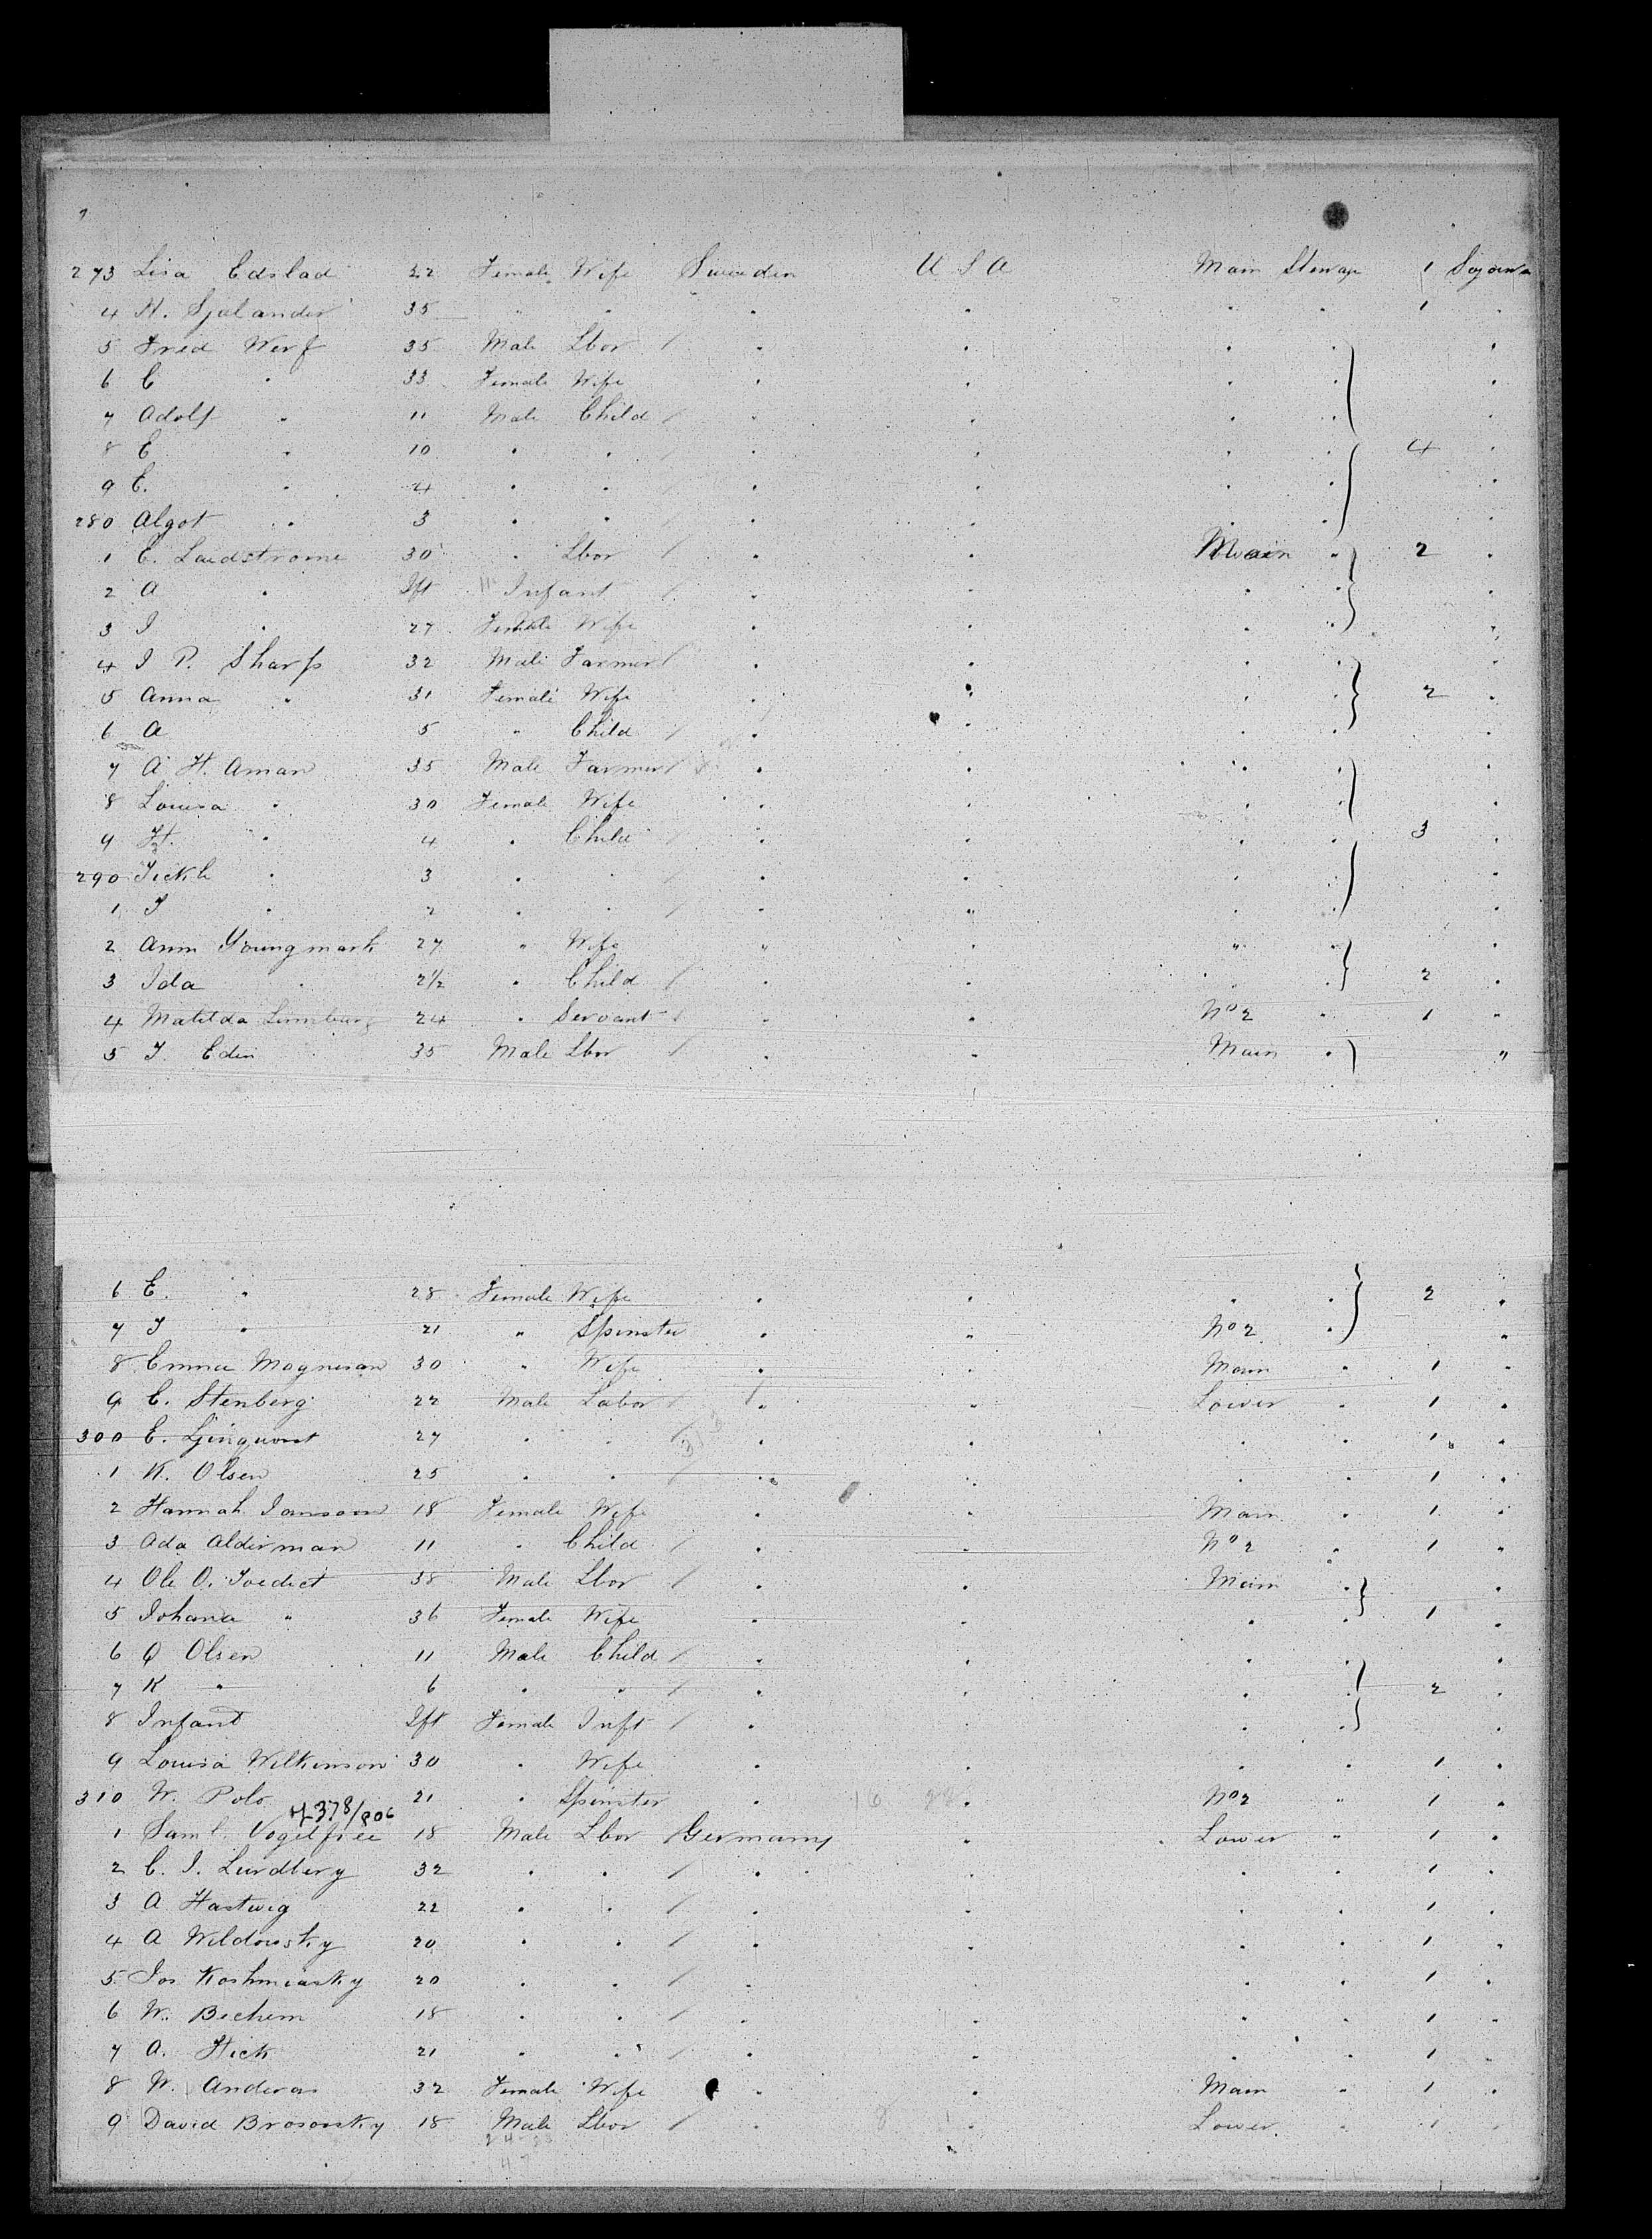 273 Lisa Edslad 22 Female Wife Sweeden U S A Main Sterage 1 Sojourn
4 H. Sjalander 35 " " " " " " 1 "
5 Fred Werf 35 Male Lbor / " " " " "
6 C " 33 Female Wife " " " " "
7 Adolf " 11 Male Child / " " " " "
8 E " 10 " " / " " " " 4 "
9 E. " 4 " " / " " " " "
280 Algot " 3 " " / " " " " "
1 C. Laidstrome 30 " Lbor / " " Main " 2 "
2 A " Ift " Infant / " " " " "
3 I " 27 Female Wife " " " " "
4 I P. Sharp 32 Male Farmer / " " " " "
5 Anna " 31 Female Wife " " " " 2 "
6 A 5 " Child / " " " " "
7 A H. Aman 35 Male Farmer / " " " " "
8 Louisa " 30 Female Wife " " " " "
9 H. " 4 " Child / " " " " 3 "
290 Tickle " 3 " " / " " " " "
1 I " 2 " " / " " " " "
2 Ann Youngmark 27 " Wife " " " " "
3 Ida " 2½ " Child / " " " " 2 "
4 Matilda Linnburg 24 " Servant / " " No 2 " 1 "
5 J. Edin 35 Male Lbor / " " Main " "
6 E. " 28 Female Wife " " " " 2 "
7 I " 21 " Spinster " " No 2 " "
8 Emma Magnusan 30 " Wife " " Main " 1 "
9 C. Stenberg 22 Male Labor / " " Lower " 1 "
300 E. Ljinquoist 27 " " / " " " " 1 "
1 K. Olsen 25 " " / " " " " 1 "
2 Hannah Ianson 18 Female Wife " " Main " 1 "
3 Ada Alderman 11 " Child / " " No 2 " 1 "
4 Ole O. 38 Male Lbor / " " Main " "
5 Iohana " 36 Female Wife " " " " 1 "
6 O Olsen 11 Male Child / " " " " "
7 K " 6 " " / " " " " 2 "
8 Infant Ift Female Inft / " " " " "
9 Louisa Wilkinson 30 " Wife " " " " 1 "
310 W. Polo 21 " Spinster " 16 " No 2 " 1 "
378/806
1 Saml. Vogelfiee 18 Male Lbor / Germany " Lower " 1 "
2 C. I. Lundberg 32 " " / " " " " 1 "
3 A Hastwig 22 " " / " " " " 1 "
4 A Wildowsky 20 " " / " " " " 1 "
5 Jos Koshmiasky 20 " " / " " " " 1 "
6 W. Bechem 18 " " / " " " " 1 "
7 A. Hick 21 " " / " " " " 1 "
8 W. Anderas 32 Female Wife " " Main " 1 "
9 David Brosowsky 18 Male Lbor / " " Lower " 1 "